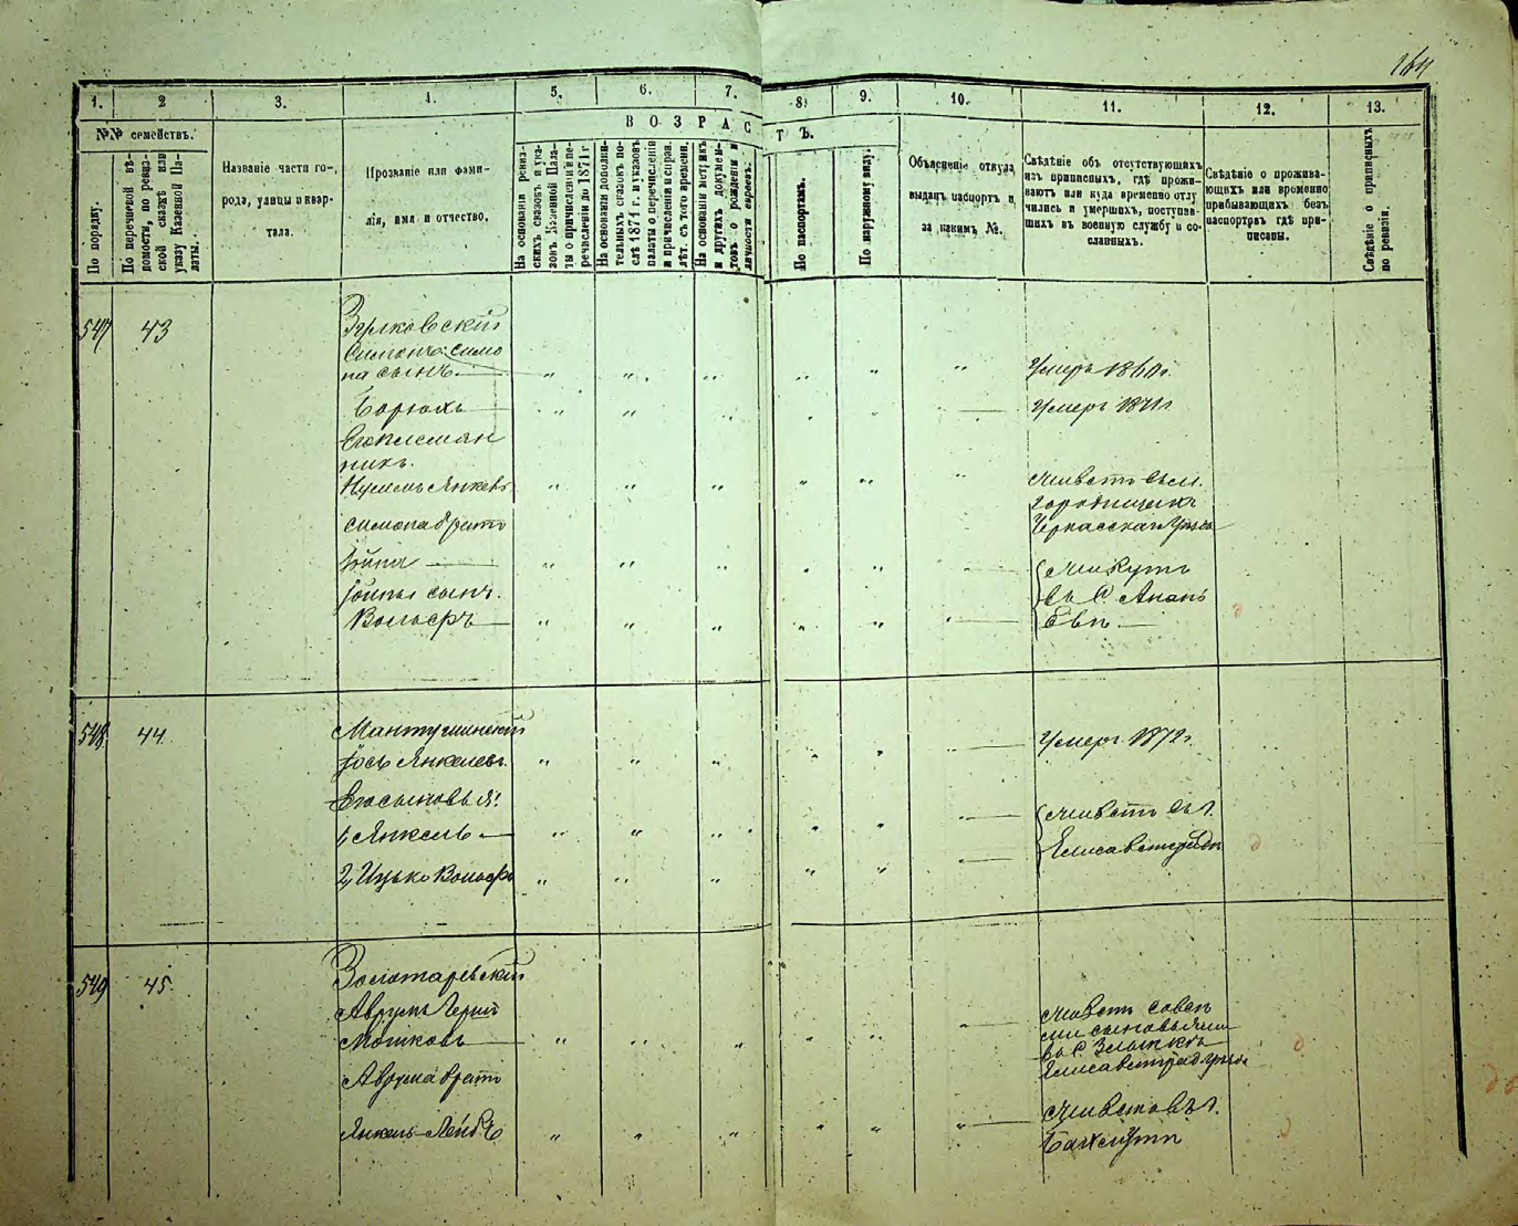 164
1. 2 3. 4. 5. 6. 7. 8) 9. 10. 11. 12. 13.
№№ семействъ.
В О З Р А С Т Ъ.
По порядку.
По перечневой вѣдомости, по ревизской сказкѣ или указу Казенной Палаты.
Названіе части города, улицы и квартала.
Прозваніе или фамилія, имя и отчество.
На основаніи ревизскихъ сказокъ и указовъ Казенной Палаты о причисленіи и перечисленіи до 1871 г
На основаніи дополнительныхъ сказокъ послѣ 1871 г. и указовъ палаты о перечисленіи и причисленіи и справ. лѣт. съ того времени.
На основаніи метрикъ и другихъ документовъ о рожденіи и личности евреевъ.
По паспортамъ.
По наружному виду.
Объясненіе откуда выданъ паспортъ и за какимъ №.
Свѣдѣніе объ отсутствующихъ изъ приписныхъ, гдѣ проживаютъ или куда временно отлучились и умершихъ, поступившихъ въ военную службу и сосланныхъ.
Свѣдѣніе о проживающихъ или временно прибывающихъ безъ паспортовъ гдѣ приписаны.
Свѣдѣніе о приписныхъ по ревизіи.
547 43
Симона сынъ Умеръ
Борюхъ Умеръ 1871г
Его племянникъ.
Янкевъ живетъ въ м.
Городищахъ
Симона братъ Черкасскаго уѣзда
Іойна живутъ
Іойны сынъ. въ С. Анань
Вольфъ евѣ
548 44
Мантушинскій Умеръ 1872г.
Іось Янкелев.
Его сыновья: живетъ въ г.
1, Янкель Елисаветградѣ
2, Ицько Вольфъ
549 45.
Золотаревскій
Аврумъ Герш живетъ совсѣ
Мошковъ ми сыновьями
въ С. Златкѣ
Аврума братъ Елисаветград уѣзда
Янкель-Лейбъ живетъ въ г.